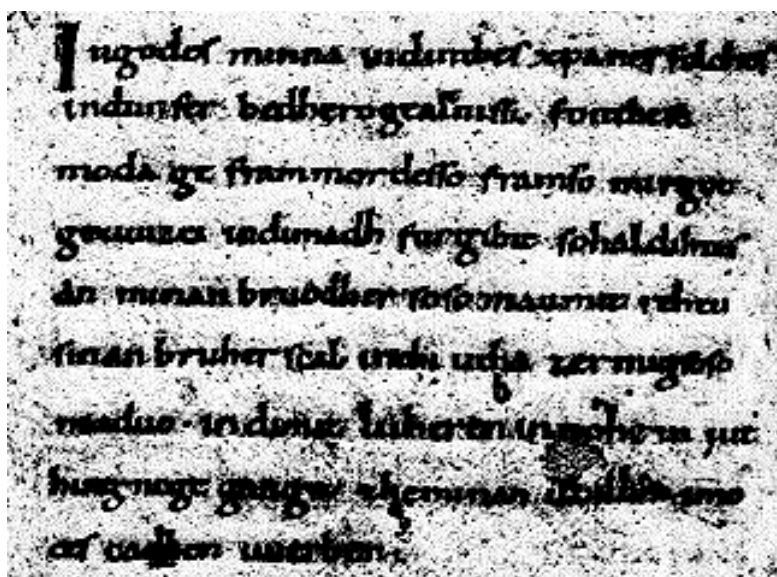 Ingodes minna indinthes xpanes folches
indunser bedherogealtnissi. fonthese
moda ge frammordesso framso mirgot
geuuizci indimadh furgibit sohaldihtes
an minan bruodher soso manmit rehtu
sinan bruher scal inthi utha zermigsoso
maduo. indimit luheren innoheiniut
hing nege gango zheminan uuillon imo
ces cadhen uuerhen.